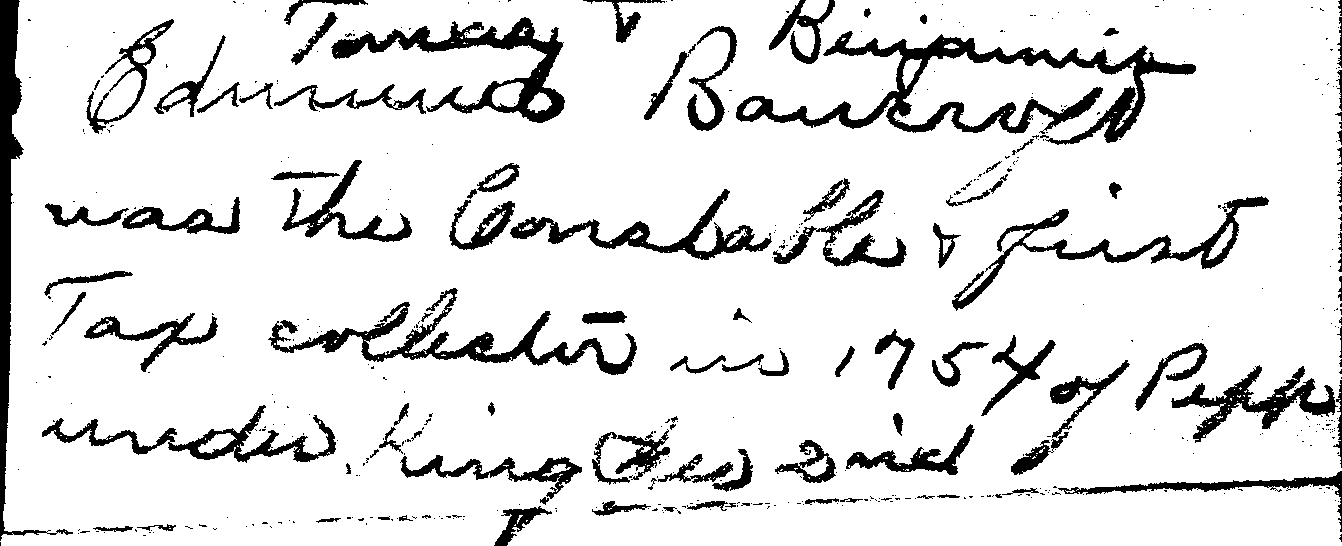 & Benjamin
Edmund Bancroft
was The Constable & first
Tax collector in 1754 of Pepp
under King Geo 2nd